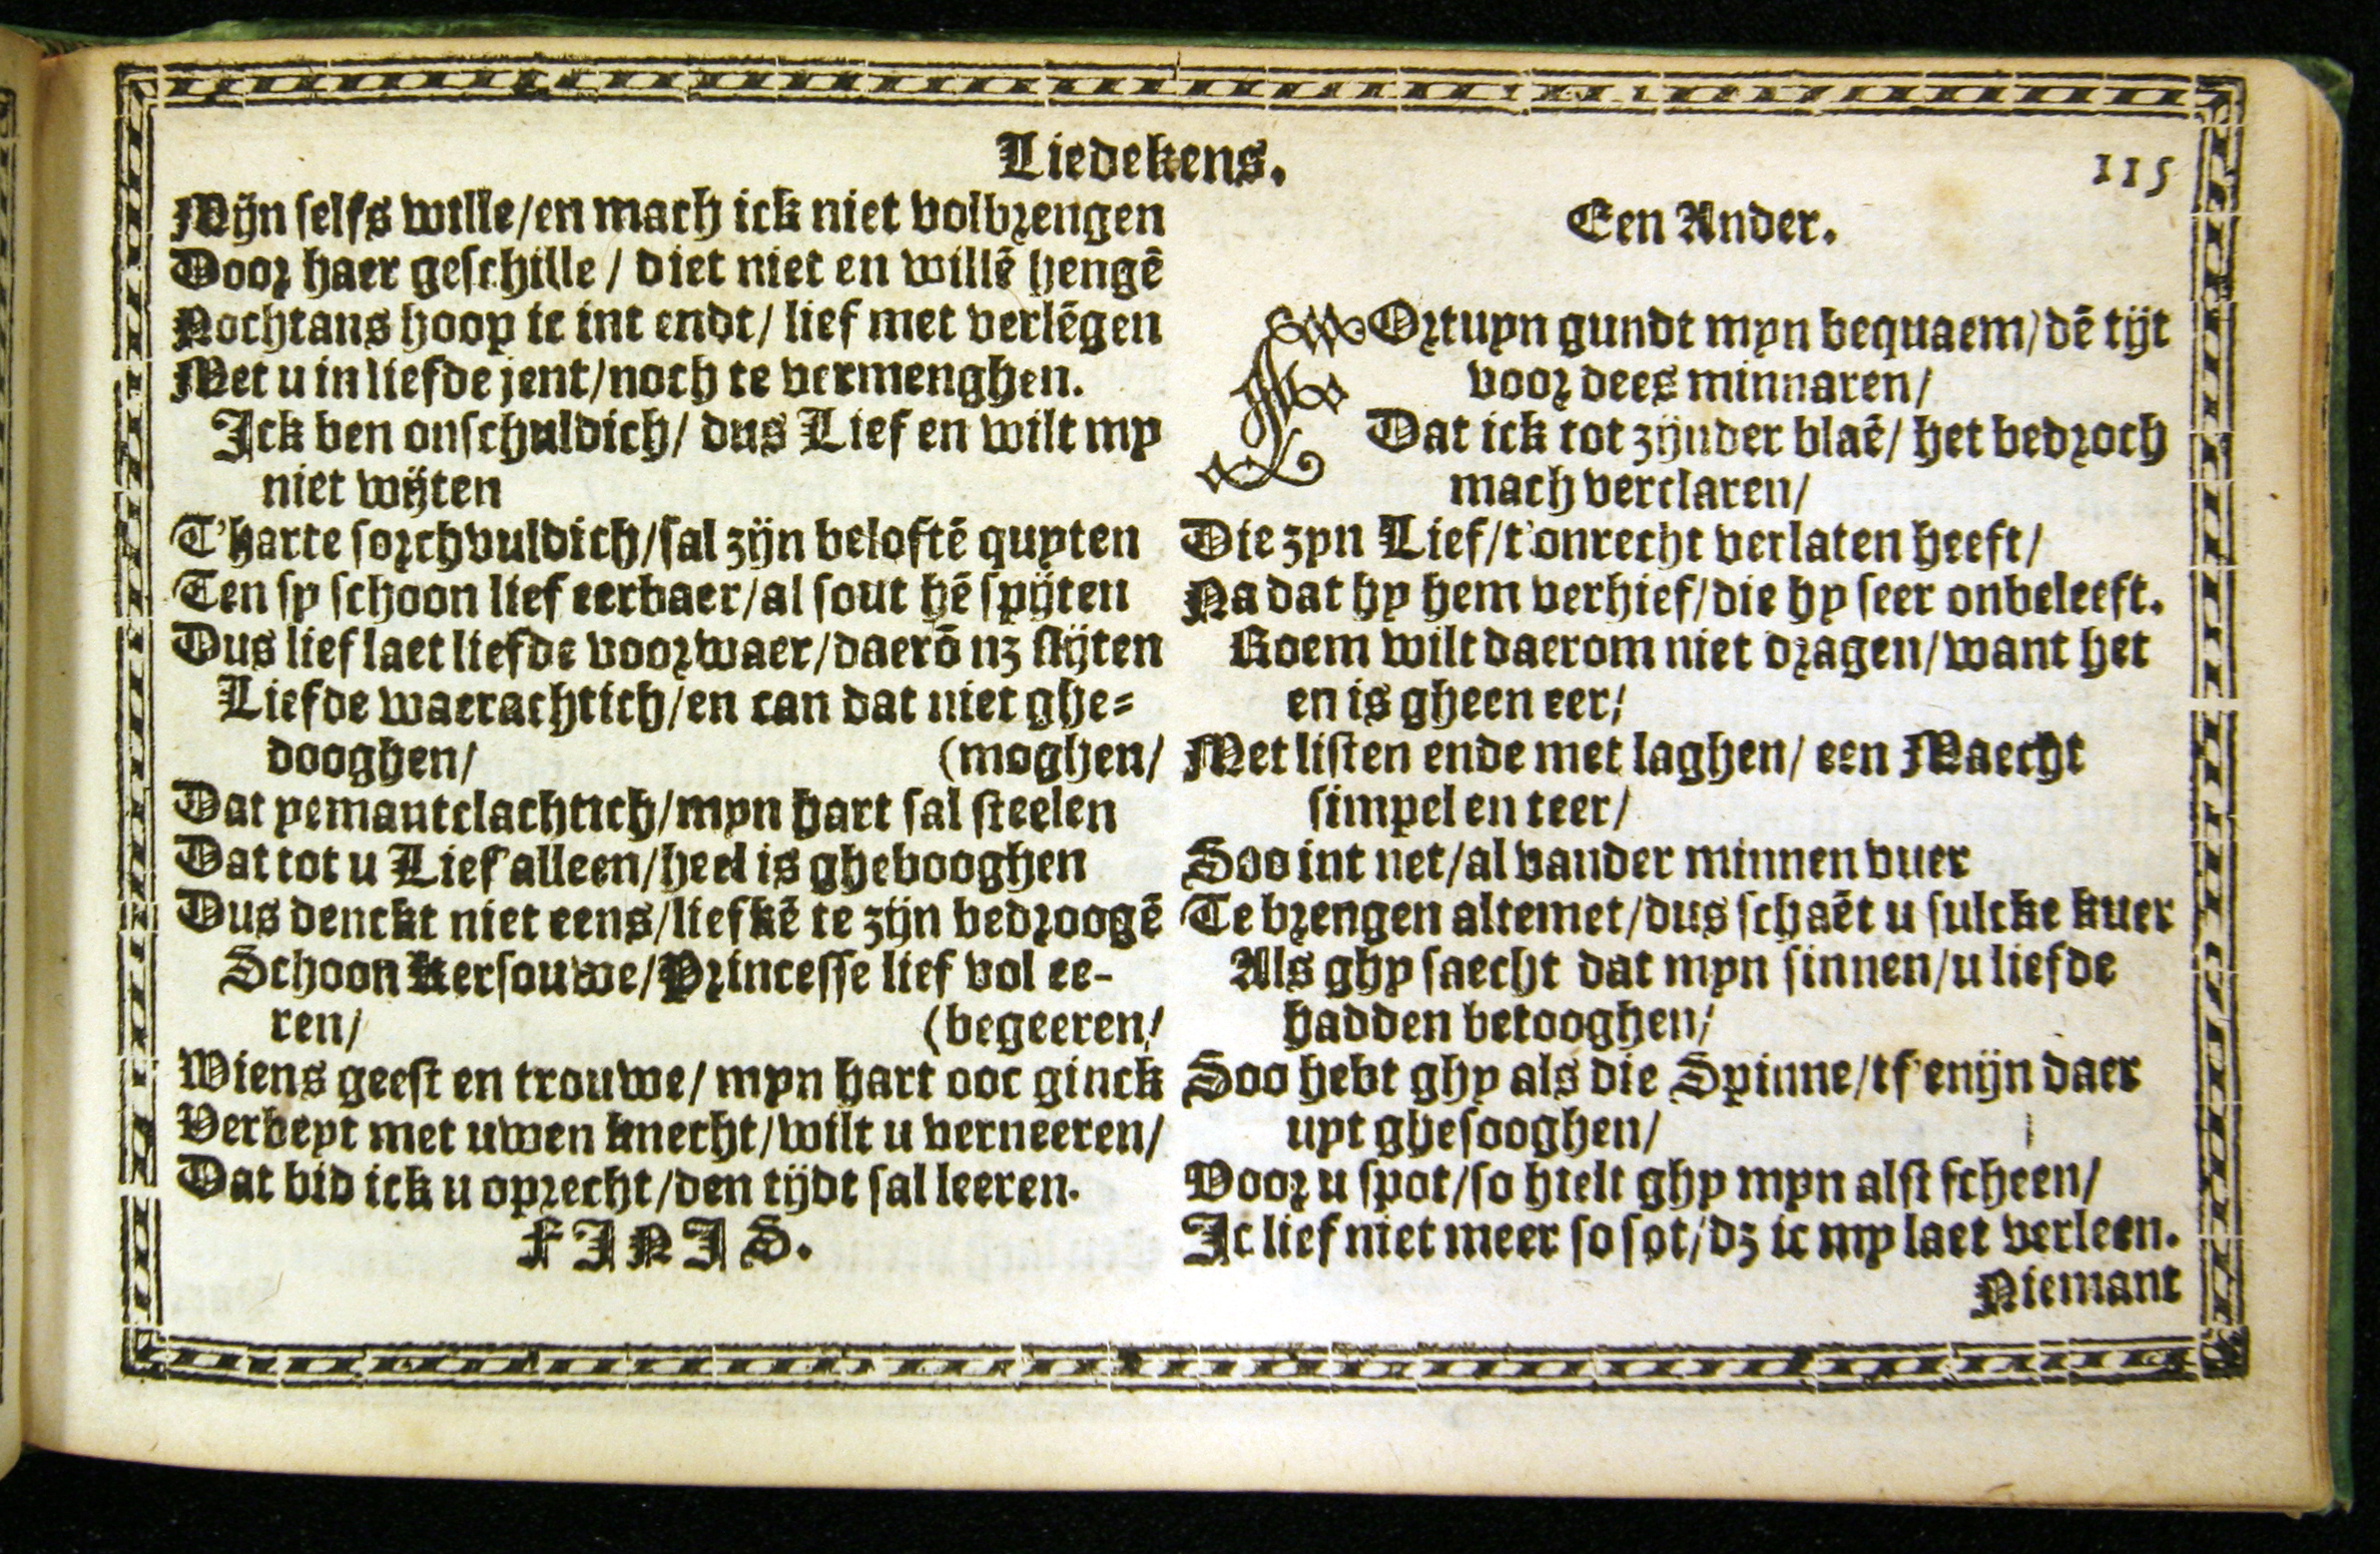 Liedekens.
115
Mijn selfs wille/en mach ick niet volbrengen
Door haer geschille / diet niet en willē hengē
Nochtans hoop ic int endt/ lief met verlēgen
Met u in liefde jent/noch te vermenghen.
Ick ben onschuldich/ dus Lief en wilt my
niet wijten
T'harte sorchvuldich/sal zijn beloftē quyten
Ten sy schoon lief eerbaer/al sout hē spijten
Dus lief laet liefde voorwaer/daerō nz slijten
Liefde waerachtich/en can dat niet ghe=
dooghen/ (moghen/
Dat yemantclachtich/myn hart sal steelen
Dat tot u Lief alleen/heel is ghebooghen
Dus denckt niet eens/liefkē te zijn bedroogē
Schoon Kersouwe/Princesse lief vol ee-
ren/ (begeeren/
Wiens geest en trouwe/ myn hart ooc ginck
Verbeyt met uwen knecht/wilt u verneeren/
Dat bid ick u oprecht/den tijdt sal leeren.
FINIS.
Een Ander.
FOrtuyn gundt myn bequaem/dē tijt
voor dees minnaren/
Dat ick tot zijnder blaē/ het bedroch
mach verclaren/
Die zyn Lief/t'onrecht verlaten heeft/
Na dat hy hem verhief/die hy seer onbeleeft.
Roem wilt daerom niet dragen/want het
en is gheen eer/
Met listen ende met laghen/ een Maecht
simpel en teer/
Soo int net/al vander minnen vuer
Te brengen altemet/dus schaēt u sulcke kuer
Als ghy saecht dat myn sinnen/u liefde
hadden betooghen/
Soo hebt ghy als die Spinne/tf'enijn daer
uyt ghesooghen/
Voor u spot/so hielt ghy myn alst scheen/
Ic lief niet meer so sot/dz ic my laet verleen.
Niemant